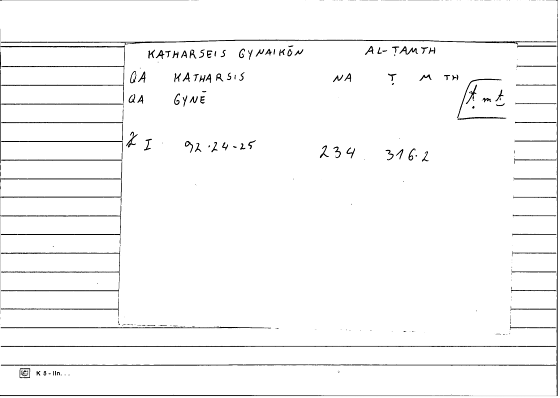 KATHARSEIS GYNAIKŌN AL-ṬAMTH
QA KATHARSIS NA Ṭ M TH
QA GYNĒ ṭ m ṯ
Z I 92.24-25 234 316.2
K 5 - IIn...